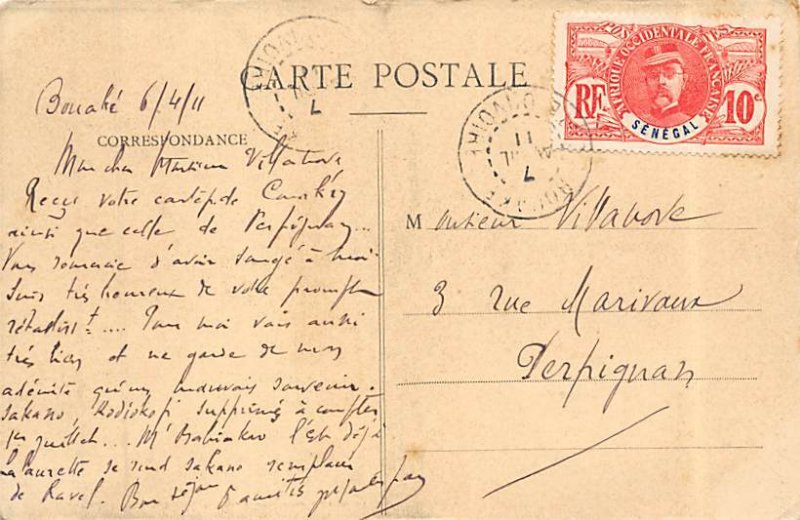 CARTE POSTALE
CORRESPONDANCE
Bouaké 6/4/11
Mon cher Monsieur Villanove
Reçu votre carte de
ainsi que celle de Perpignan...
Vous remercie d'avoir songé à moi
Suis très heureux de votre prompt
rétablisst.... Pour moi vais aussi
très bien et ne garde de mon
qu'un mauvais souvenir.
Sakano, Kodiokofi supprimés à compter
1er juillet... M' l'est déjà
Lalaurette se rend Sakano remplacé
de Ravel. Bon séjour
POSTES
AFRIQUE OCCIDENTALE FRANÇAISE
RF
10c
SÉNÉGAL
BOUAKE
7
11
Monsieur Villanove
3 rue Marivaux
Perpignan